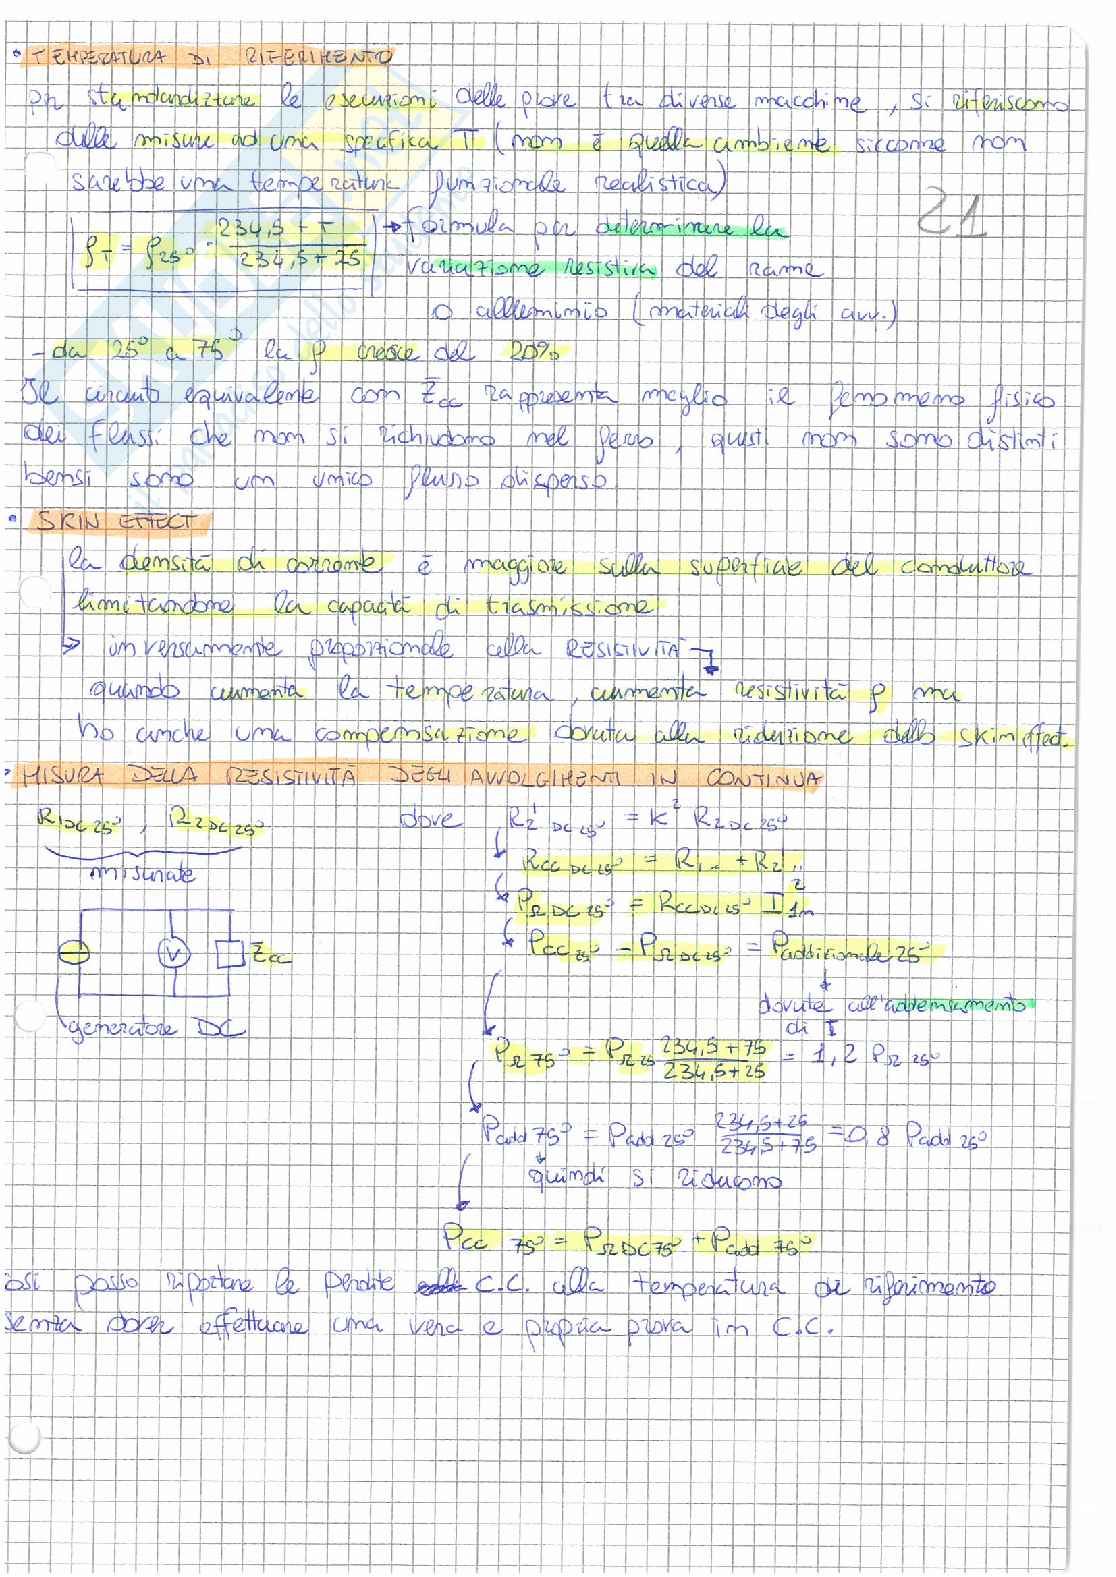 • TEMPERATURA DI RIFERIMENTO
per standardizzare le esecuzioni delle prove tra diverse macchine, si riferiscono
delle misure ad una specifica T (non è quella ambiente siccome non
sarebbe una temperatura funzionale realistica)
21
ρT = ρ25° · (234,5 + T)/(234,5 + 25) → formula per determinare la
variazione resistiva del rame
o alluminio (materiali degli avv.)
- da 25° a 75° la ρ cresce del 20%
Il circuito equivalente con Z̄cc rappresenta meglio il fenomeno fisico
dei flussi che non si richiudono nel ferro, questi non sono distinti
bensì sono un unico flusso disperso
• SKIN EFFECT
la densità di corrente è maggiore sulla superficie del conduttore
limitandone la capacità di trasmissione
→ inversamente proporzionale alla RESISTIVITÀ
quando aumenta la temperatura, aumenta resistività ρ ma
ho anche una compensazione dovuta alla riduzione dello skin effect.
• MISURA DELLA RESISTIVITÀ DEGLI AVVOLGIMENTI IN CONTINUA
R1DC25° , R2DC25° dove R2'DC25° = K² R2DC25°
misurate
RCC DC25° = R1.. + R2'..
PΩDC25° = RCCDC25° I²1n
V Z̄cc
PCC25° - PΩDC25° = Paddizionale25°
generatore DC
dovute all'addensamento
di I
PΩ75° = PΩ25 (234,5+75)/(234,5+25) = 1,2 PΩ25°
Padd75° = Padd25° (234,5+25)/(234,5+75) = 0,8 Padd25°
quindi si riducono
PCC 75° = PΩDC75° + Padd 75°
osi posso riportare le perdite C.C. alla temperatura di riferimento
senza dover effettuare una vera e propria prova in C.C.